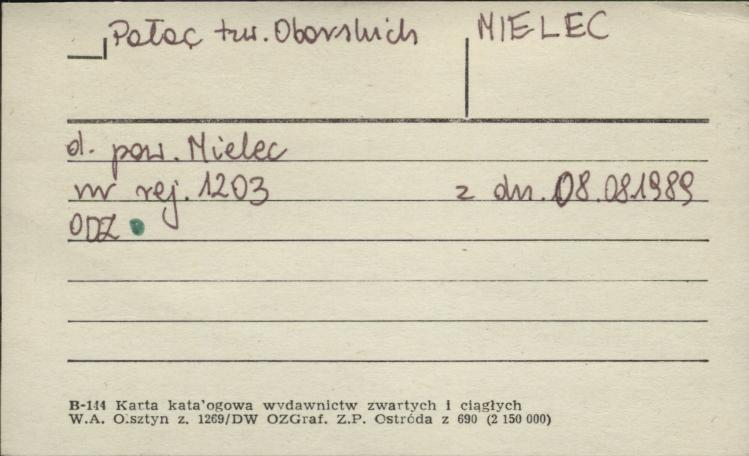 Pałac tzw. Oborskich MIELEC
d. pow. Mielec
nr rej. 1203 z dn. 08.08.1989
ODZ
B-144 Karta kata'ogowa wydawnictw zwartych i ciągłych
W.A. O.sztyn z. 1269/DW OZGraf. Z.P. Ostróda z 690 (2 150 000)